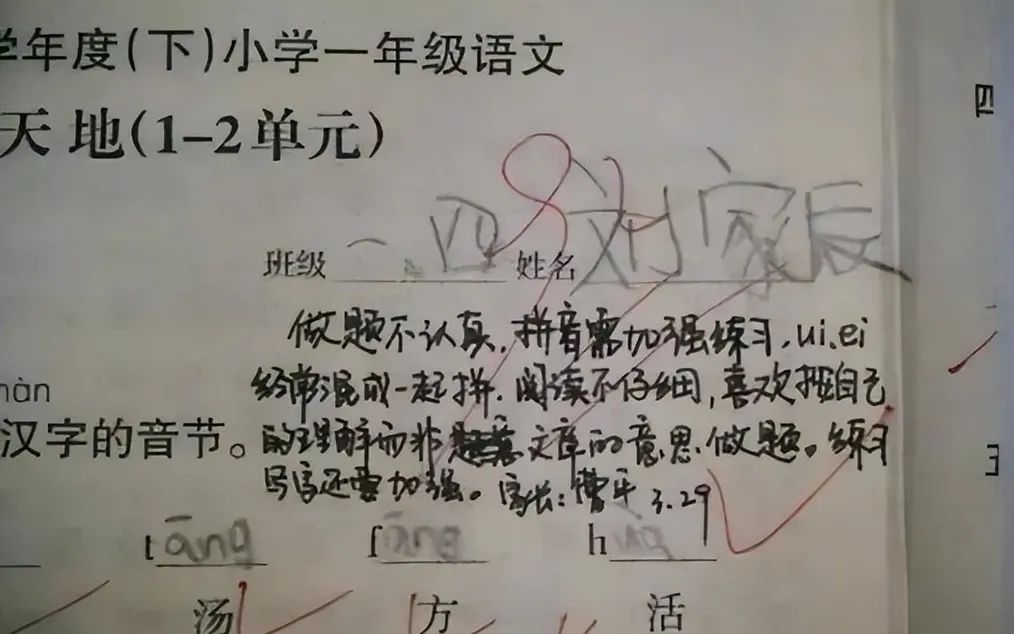 学年度(下)小学一年级语文
天地(1-2单元)
四
班级 一.四 姓名 刘家辰
做题不认真,拼音需加强练习,ui.ei
经常混成一起拼.阅读不仔细,喜欢按自己
的理解而非文章的意思做题。练习
书写还要加强。家长:曹 3.29
hàn
汉字的音节。
tāng fāng h
汤 方 活